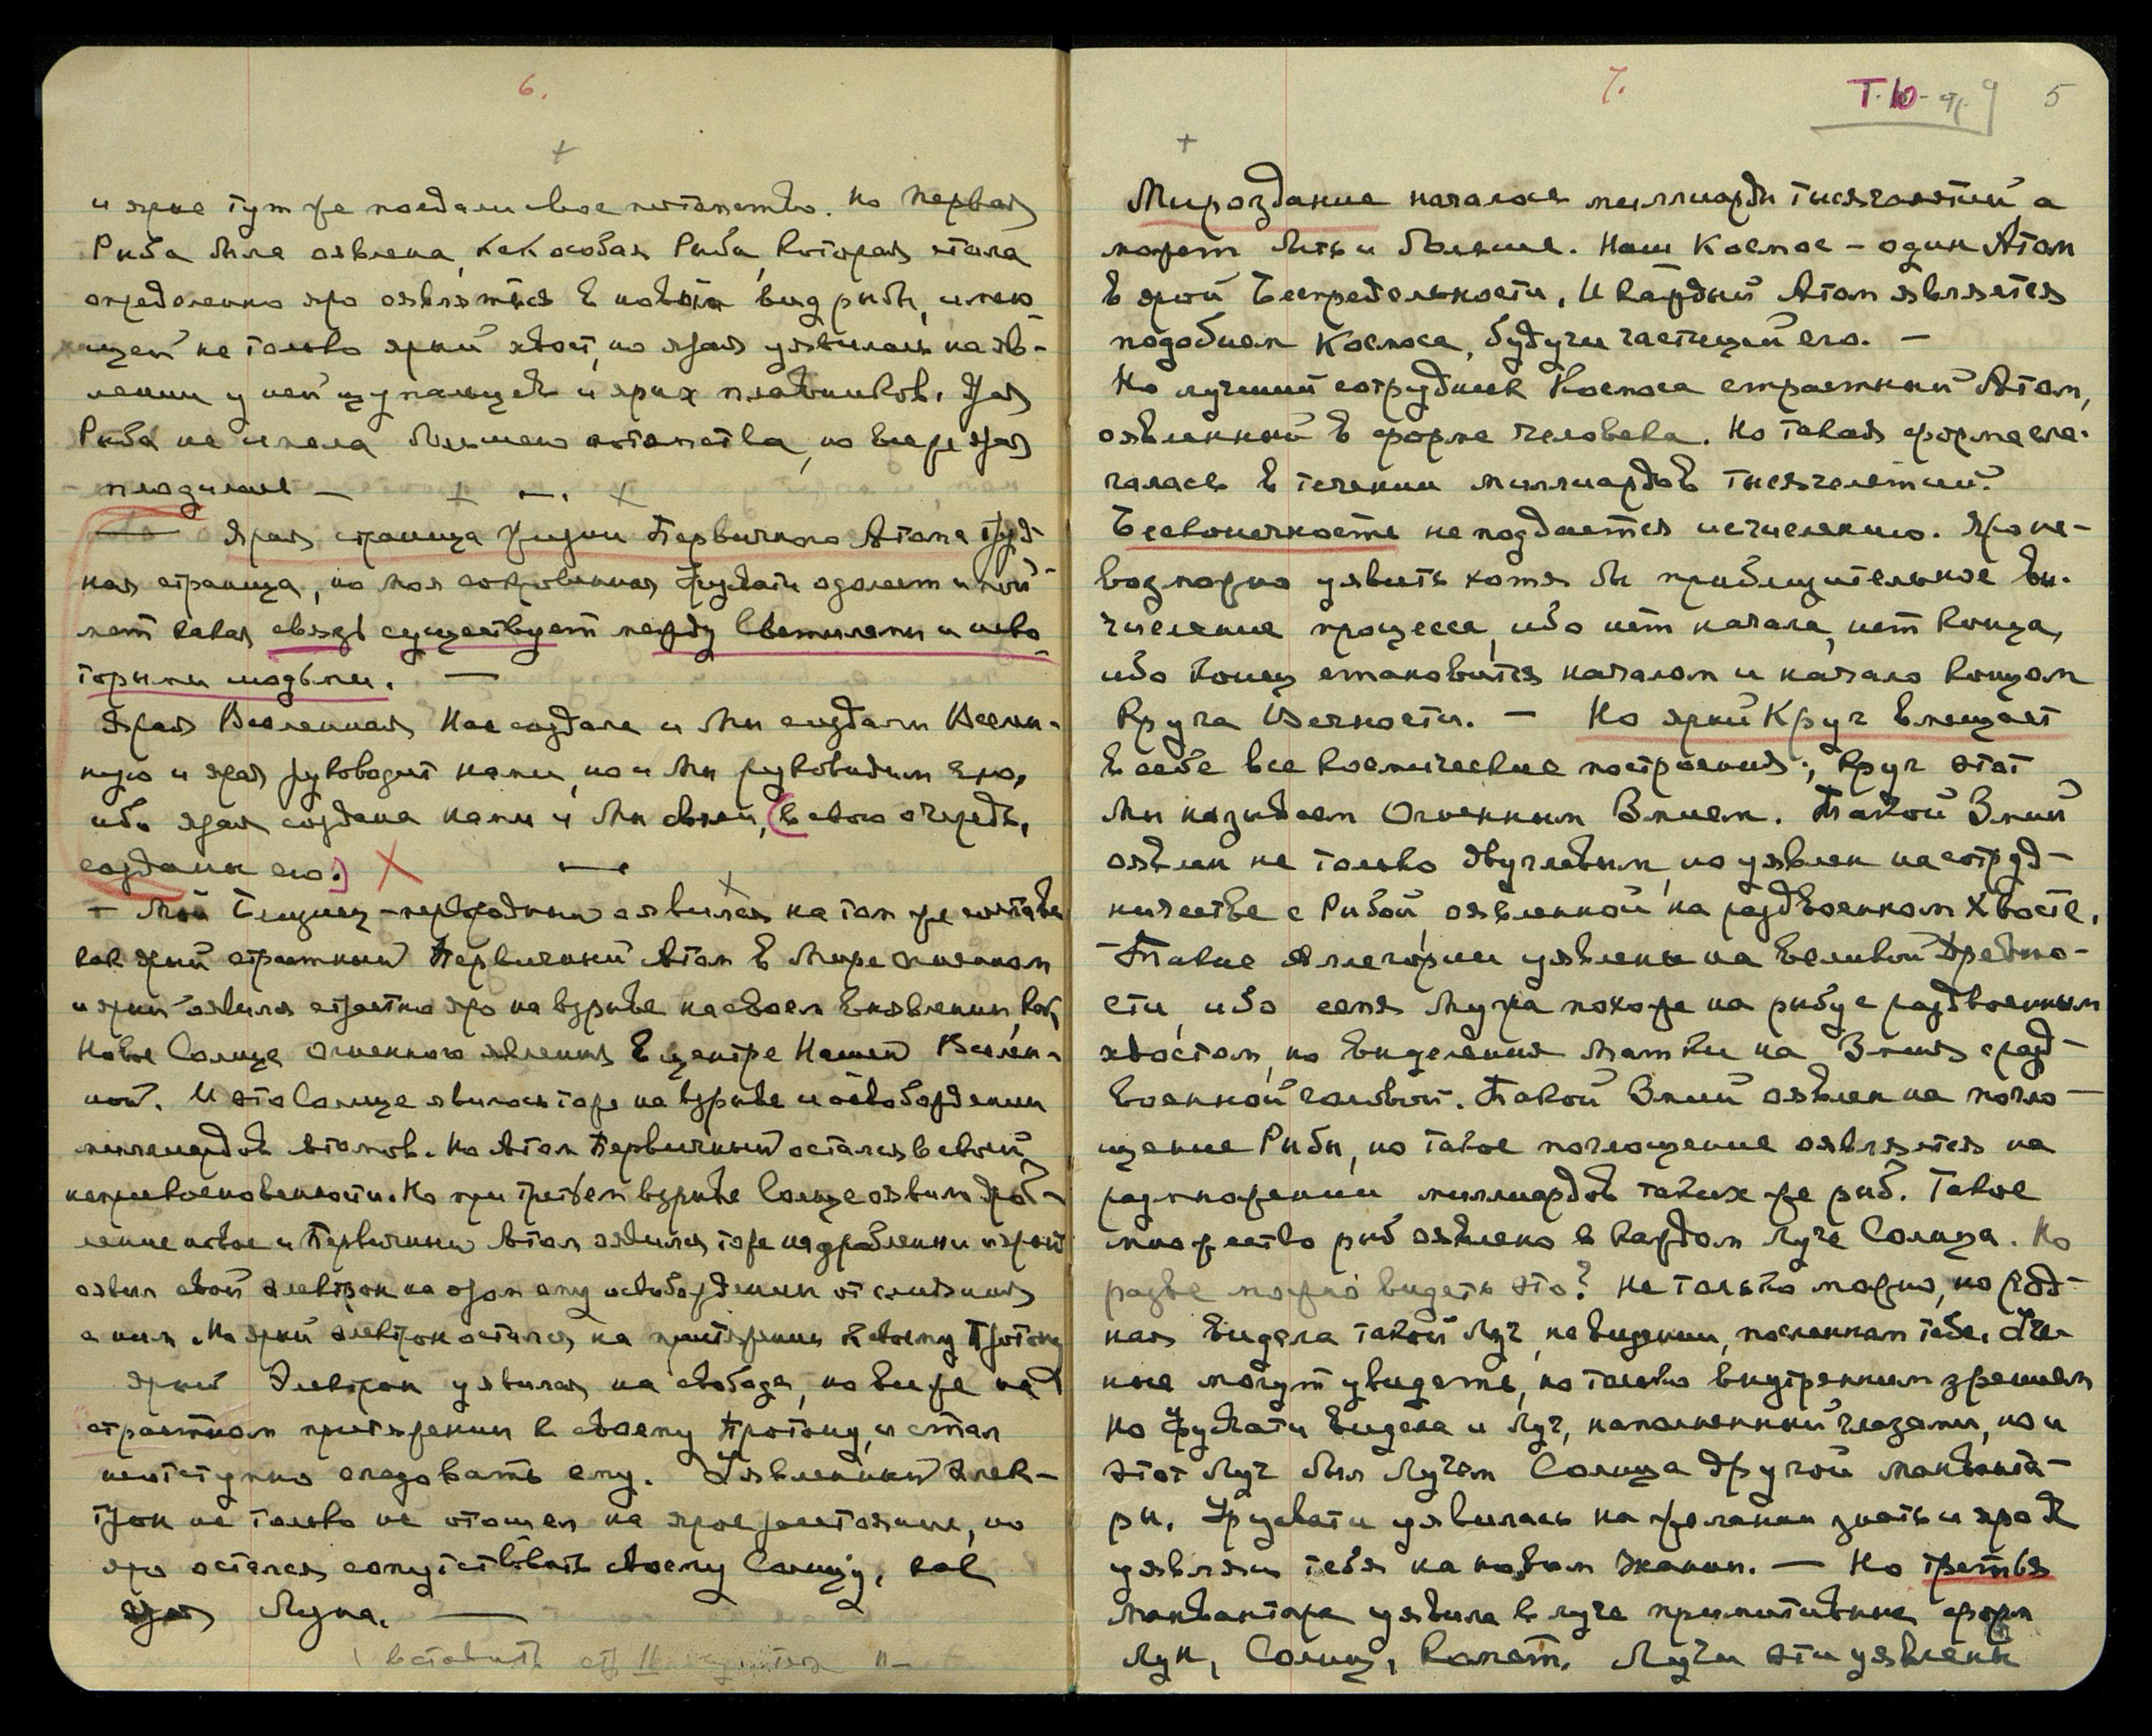 6.
и ярые тут же поедали свое потомство. Но первая
Рыба была оявлена, как особая Рыба, которая стала
определенно яро оявляться в новый вид рыбы, имею-
щей не только ярый хвост, но ярая уявилась на яв-
лении у ней щупальцев и ярых плавников. Ярая
Рыба не имела большого потомства, но все же ярая
плодилась —
— Ярая страница жизни Первичного Атома труд-
ная страница, но моя сокровенная Урусвати одолеет и пой-
мет какая связь существует между Светилами и неко-
торыми людьми. —
Ярая Вселенная Нас создала и Мы создали Вселен-
ную и ярая руководит нами, но и Мы руководим ею,
ибо ярая создана нами и Мы были, (в свою очередь,
созданы ею.)
— Мой Близнец-первородный оявился на том же составе
как ярый страстный Первичный Атом в Мире огненном
и ярый оявился страстно яро на взрыве на своем выявлении, как
Новое Солнце огненного явления в центре Нашей Вселен-
ной. И это Солнце явилось тоже на взрыве и освобождении
миллиардов атомов. Но Атом Первичный остался в своей
неприкосновенности. Но при третьем взрыве Солнце оявило дроб-
ление новое и Первичный Атом оявился тоже на дроблении и ярый
оявил свой электрон на яром ему освобождении от слияния
с ним. Но ярый электрон остался на притяжении к своему Протону
ярый Электрон уявился на свободе, но все же на
страстном притяжении к своему Протону, и стал
неотступно следовать ему. Уявленный Элек-
трон не только не отошел на ярое расстояние, но
яро остался сопутствовать своему Солнцу, как
ярая Луна. —
(вставить стр.
7.
Т.Ю. 9 5
Мироздание началось миллиарды тысячелетий а
может быть и больше. Наш Космос — один Атом
в ярой Беспредельности, И каждый Атом является
подобием Космоса, будучи частицей его. —
Но лучший сотрудник Космоса страстный Атом,
оявленный в форме человека. Но такая форма сла-
галась в течении миллиардов тысячелетий.
Бесконечность не поддается исчислению. Яро не-
возможно уявить хотя бы приблизительное вы-
числение процесса, ибо нет начала, нет конца,
ибо конец становится началом и начало концом
Круга Вечности. — Но ярый Круг вмещает
в себе все космические построения; Круг этот
мы называем Огненным Змием. Такой Змий
оявлен не только двуглавым, но уявлен на сотруд-
ничестве с Рыбой, оявленной на раздвоенном Хвосте.
— Такие Аллегории уявлены на великой Древно-
сти, ибо семя Мужа похоже на рыбу с раздвоенным
хвостом, но выделения Матки на Змия с раз-
военной головой. Такой Змий оявлен на погло-
щение Рыбы, но такое поглощение оявляется на
размножении миллиардов таких же рыб. Такое
множество рыб оявлено в каждом Луче Солнца. Но
разве можно видеть это? Не только можно, но Род-
ная видела такой Луч, на видении, посланном тебе. Уче-
ные могут увидеть, но только внутренним зрением
Но Урусвати видела и Луч, наполненный глазами, но и
этот Луч был Лучем Солнца другой манванта-
ры. Урусвати уявилась на желании знать и яро Я
уявляю тебя на новом знании. — Но третья
манвантара уявила в луче примитивные формы
Лун, Солнц, Комет. Лучи эти уявлены